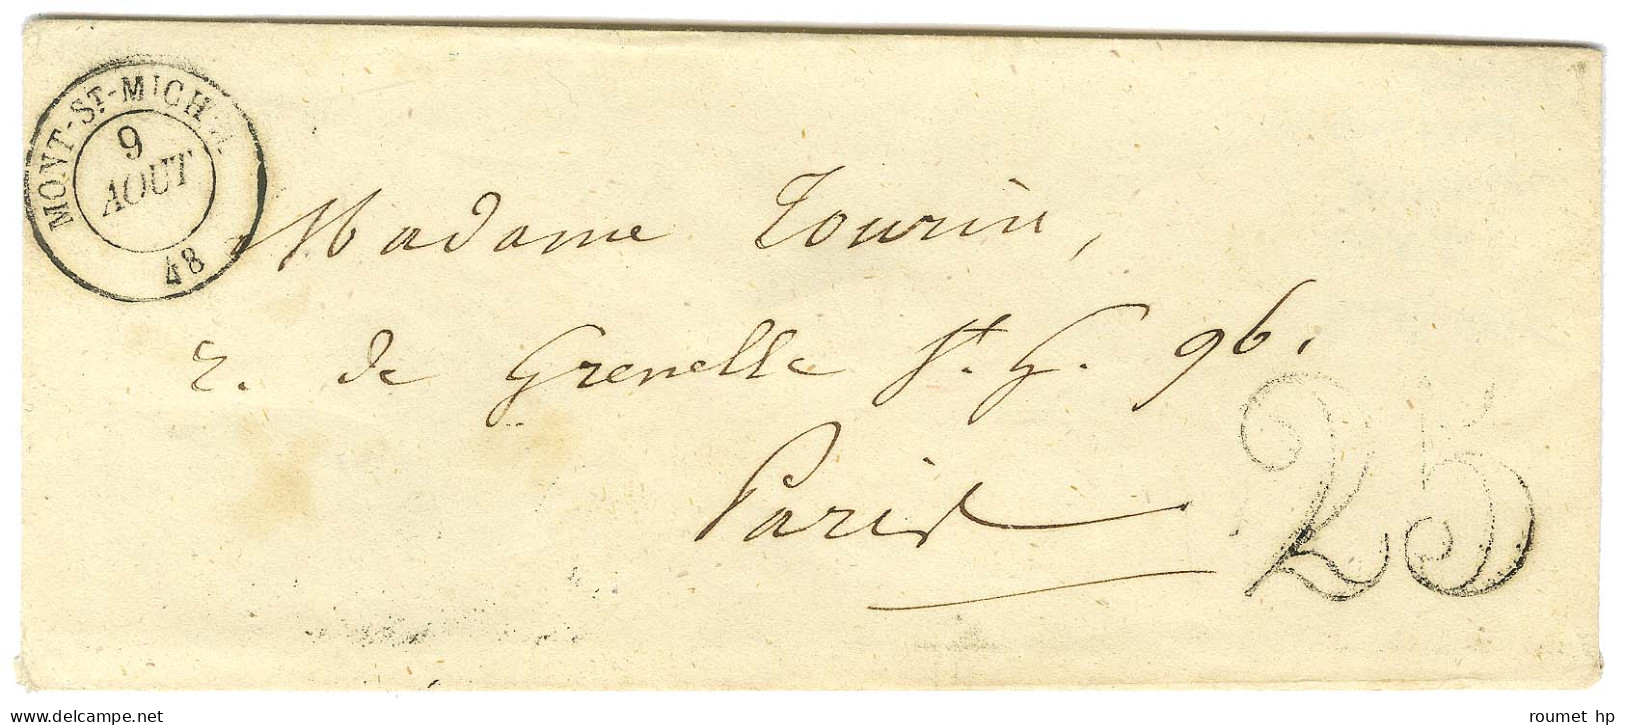 MONT-ST-MICHEL
9
AOUT
48
Madame Tourin,
r. de Grenelle St. G. 96.
Paris
25
www.delcampe.net
roumet hp